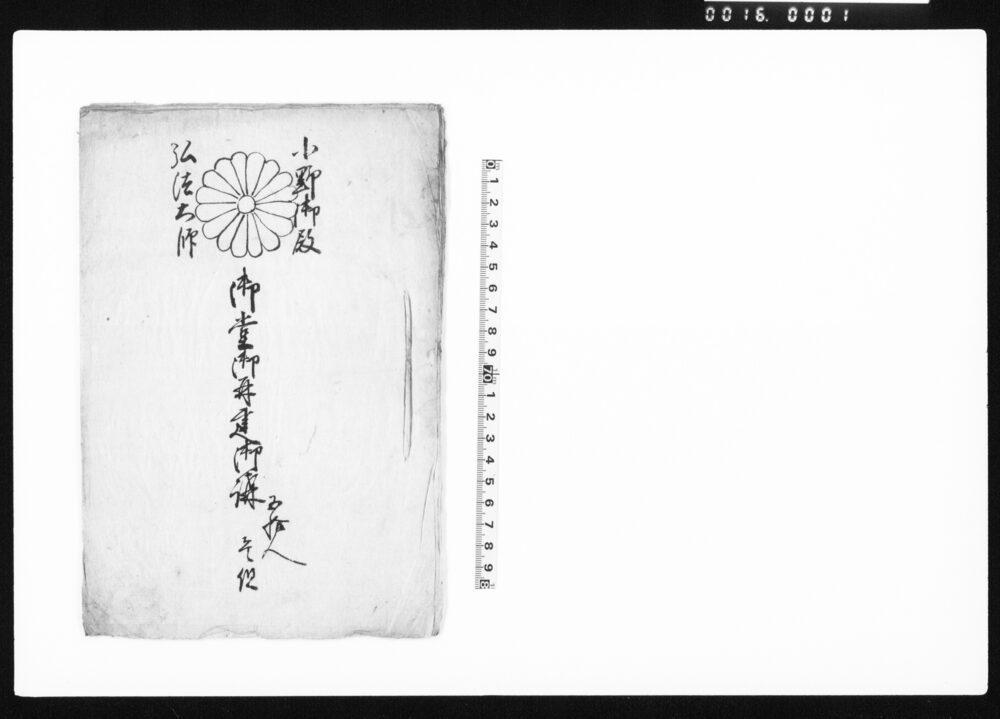 0016. 0001
小野御殿
弘法大師
御堂御再建御講
五拾人
壱組
0 1 2 3 4 5 6 7 8 9 10 1 2 3 4 5 6 7 8 9